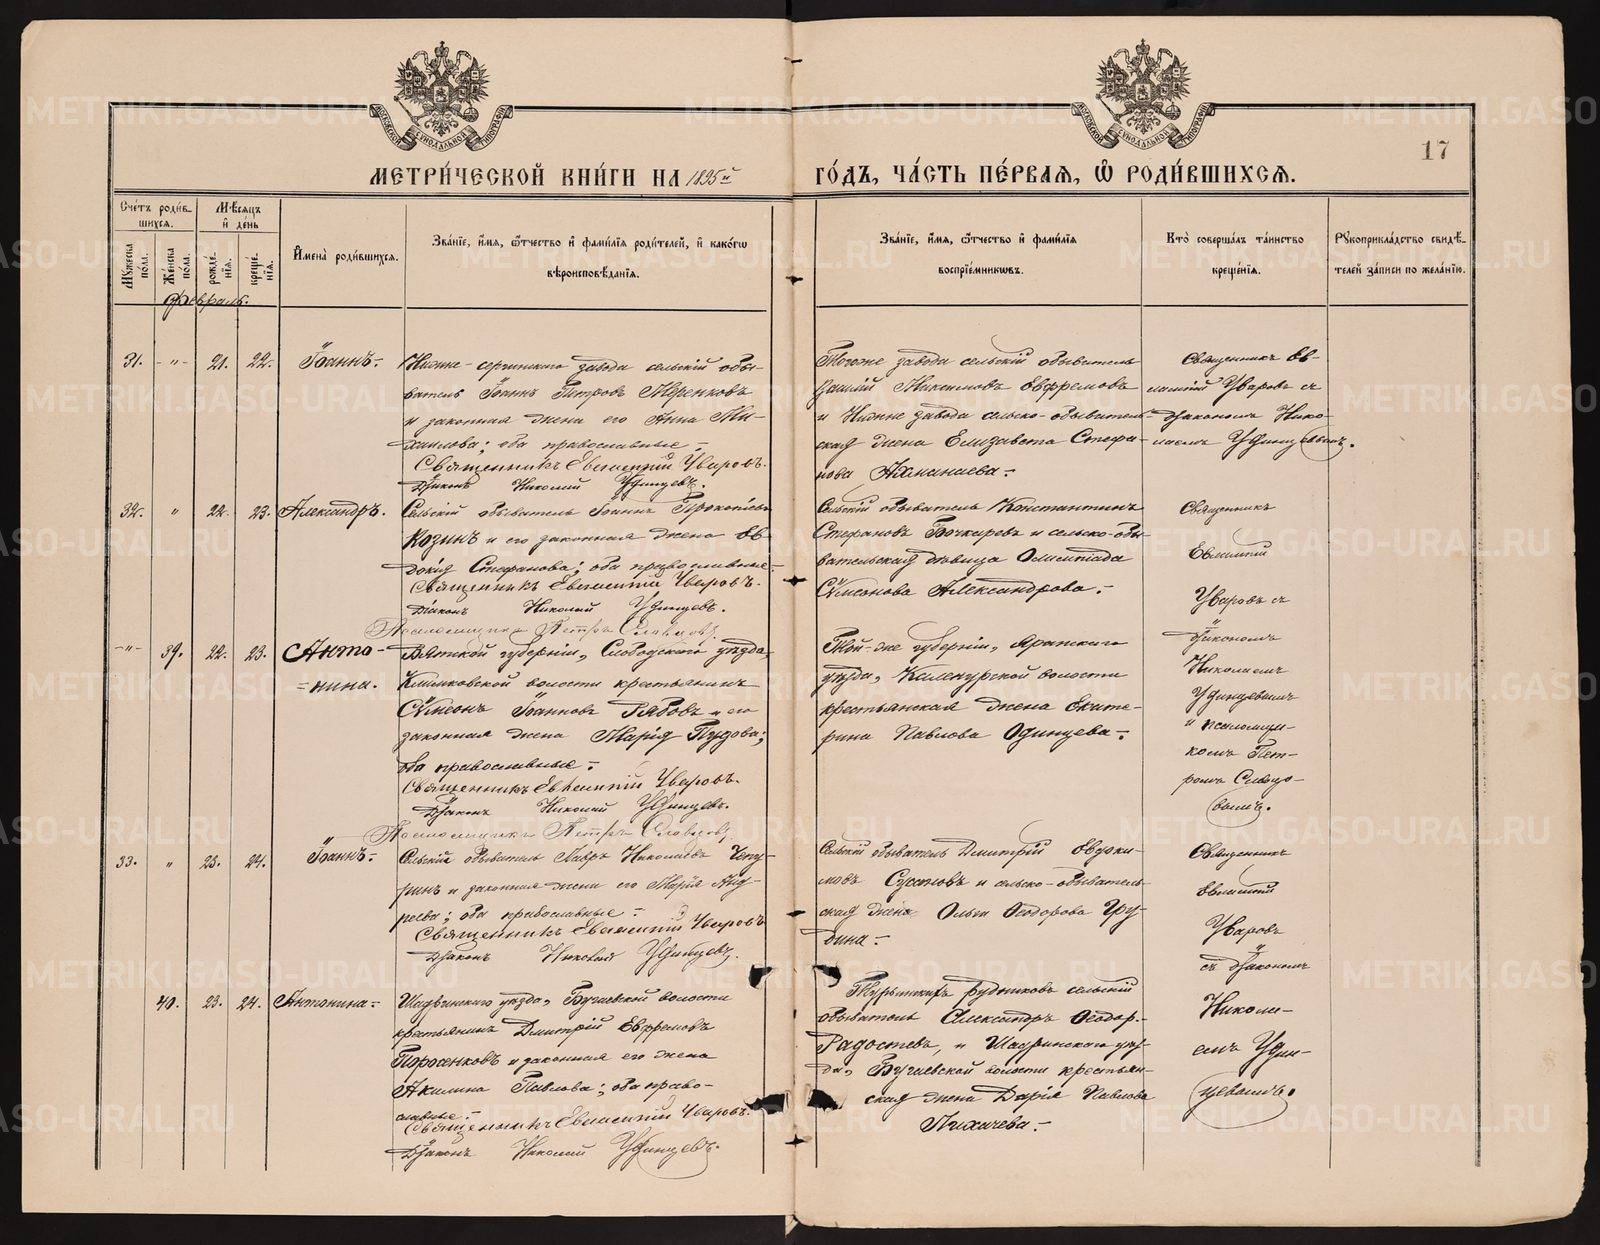 МЕТРИ́ЧЕСКОЙ КНИ́ГИ НА 1895й ГО́ДЪ, ЧА́СТЬ ПЕ́РВАѦ, Ѽ РОДИ́ВШИХСѦ.
17
МОСКОВСКОЙ СѴНОДАЛЬНОЙ ТИПОГРАФІИ
МОСКОВСКОЙ СѴНОДАЛЬНОЙ ТИПОГРАФІИ
Сче́тъ роди́в-
шихсѧ.
Мꙋ́жеска по́ла.
Же́нска по́ла.
Мѣ́сѧцъ
и҆ де́нь
рожде́-
нїѧ.
креще́-
нїѧ.
И҆мена̀ роди́вшихсѧ.
Зва́нїе, и҆́мѧ, ѻ҆́тчество и҆ фами́лїѧ роди́телей, и҆ како́гѡ
вѣроисповѣ́данїѧ.
Зва́нїе, и҆́мѧ, ѻ҆́тчество и҆ фами́лїѧ
воспрїе́мникѡвъ.
Кто̀ соверша́лъ та́инство
креще́нїѧ.
Рꙋкоприкла́дство свидѣ́-
телей за́писи по жела́нїю.
Февраль.
31. - " - 21. 22. Іоаннъ.-
Нижне-сергинскаго завода сельскій обы-
ватель Іоаннъ Петровъ
и законная жена его Анна Ми-
хаилова; оба православные.-
Священникъ Евгеній Уваровъ.
Діаконъ Николай Удинцевъ.
Тогоже завода сельскій обыватель
Максимовъ Евфремовъ
и Нижне завода сельско-обыватель-
ская жена Елизавета Стефа-
нова
Священникъ Ев-
Уваровъ съ
діакономъ Нико-
лаемъ Удинцевымъ.
32. " 22. 23. Александръ.
Сельскій обыватель Іоаннъ Прокопіевъ
Козинъ и его законная жена Ев-
докія Стефанова; оба православные-
Священникъ Евгеній Уваровъ.
Діаконъ Николай Удинцевъ.
Псаломщикъ Петръ Словцовъ.
Сельскій обыватель Константинъ
Стефановъ Бочкаревъ и сельско-обы-
вательская дѣвица Олимпіада
Сѵмеонова Александрова.-
Священникъ
Евгеній
Уваровъ съ
діакономъ
Николаемъ
Удинцевымъ
и псаломщи-
комъ Пет-
ромъ Словцо-
вымъ.
-"- 39. 22. 23. Анто-
=нина.
Вятской губерніи, Слободскаго уѣзда,
Климковской волости крестьянинъ
Сѵмеонъ Іоанновъ Рябовъ и его
законная жена Марія
оба православные.-
Священникъ Евгеній Уваровъ.
Діаконъ Николай Удинцевъ.
Псаломщикъ Петръ Словцовъ.
Той-же губерніи,
уѣзда, волости
крестьянская жена Екате-
рина Павлова Одинцева.-
33. " 23. 24. Іоаннъ.-
Сельскій обыватель Лавръ Николаевъ Чепу-
ринъ и законная жена его Марія Анд-
реева; оба православные.-
Священникъ Евгеній Уваровъ
Діаконъ Николай Удинцевъ.
Сельскій обыватель Дмитрій Аверки-
евъ и сельско-обыватель-
ская жена Ольга Ѳеодорова Гру-
дина.-
Священникъ
Евгеній
Уваровъ
съ діакономъ
Никола-
емъ Удин-
цевымъ.
40. 23. 24. Антонина.-
Шадринскаго уѣзда, Бугаевской волости
крестьянинъ Дмитрій Евфремовъ
и законная его жена
Акилина Павлова; оба право-
славные.-
Священникъ Евгеній Уваровъ.
Діаконъ Николай Удинцевъ.
Турьинскихъ рудниковъ сельскій
обыватель Александръ Ѳеодор.
Радостевъ, и Шадринскаго уѣз-
да, Бугаевской волости крестьян-
ская жена Дарія Павлова
Лихачева.-